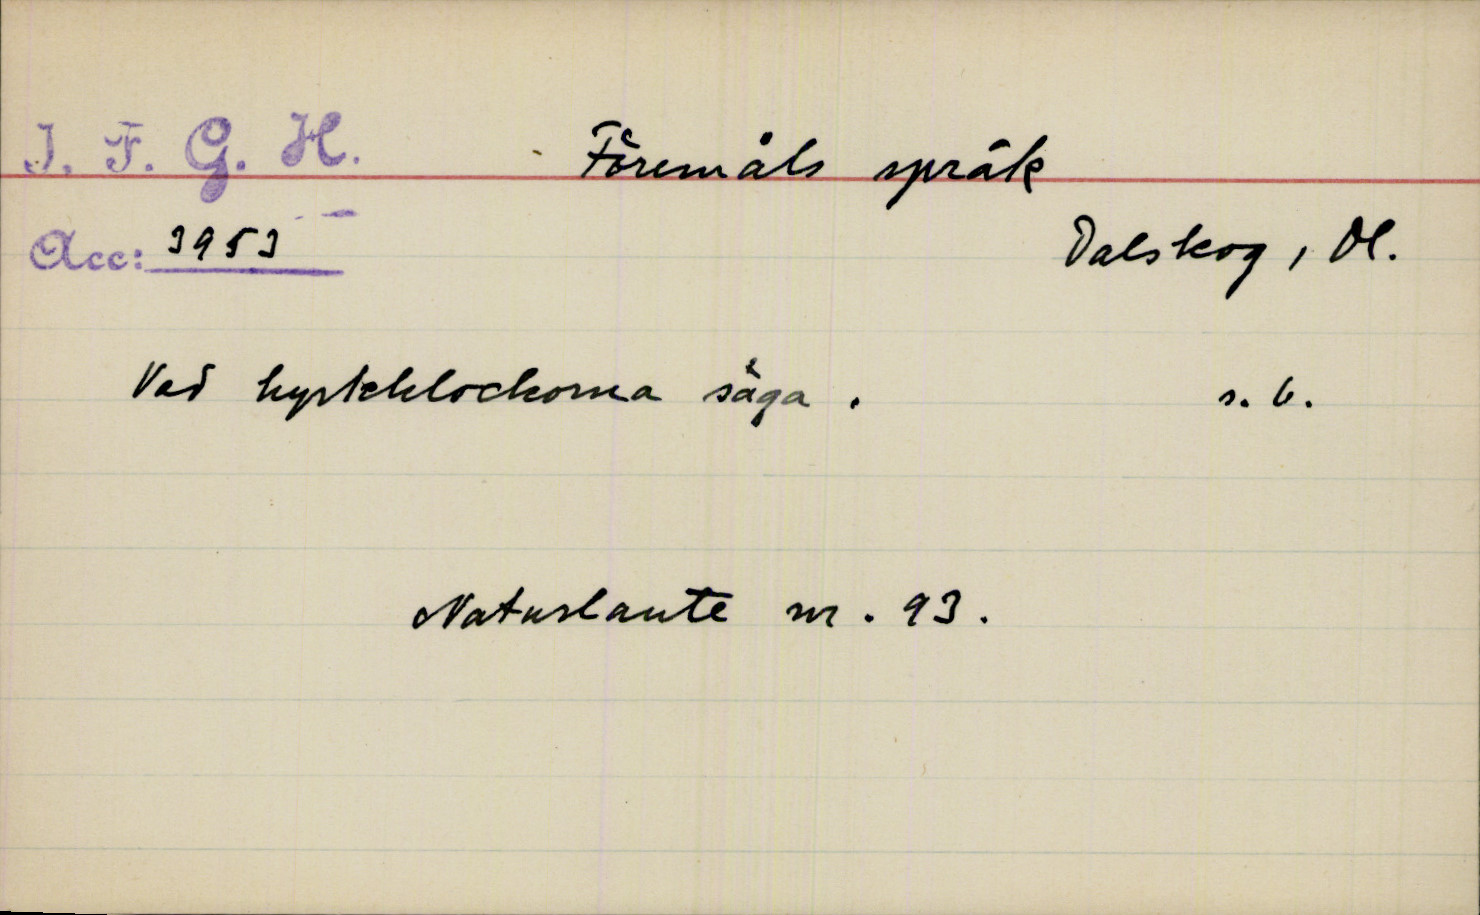 I. F. G. H. Föremåls språk
Acc: 3953 Dalskog, Dl.
Vad kyrkklockorna säga. s. 6.
Naturlaute nr. 93.